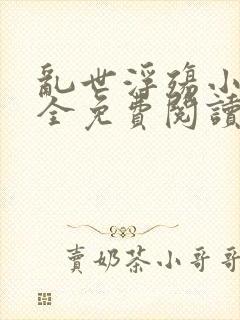 亂世浮殤小
全免費閱讀
賣奶茶小哥哥